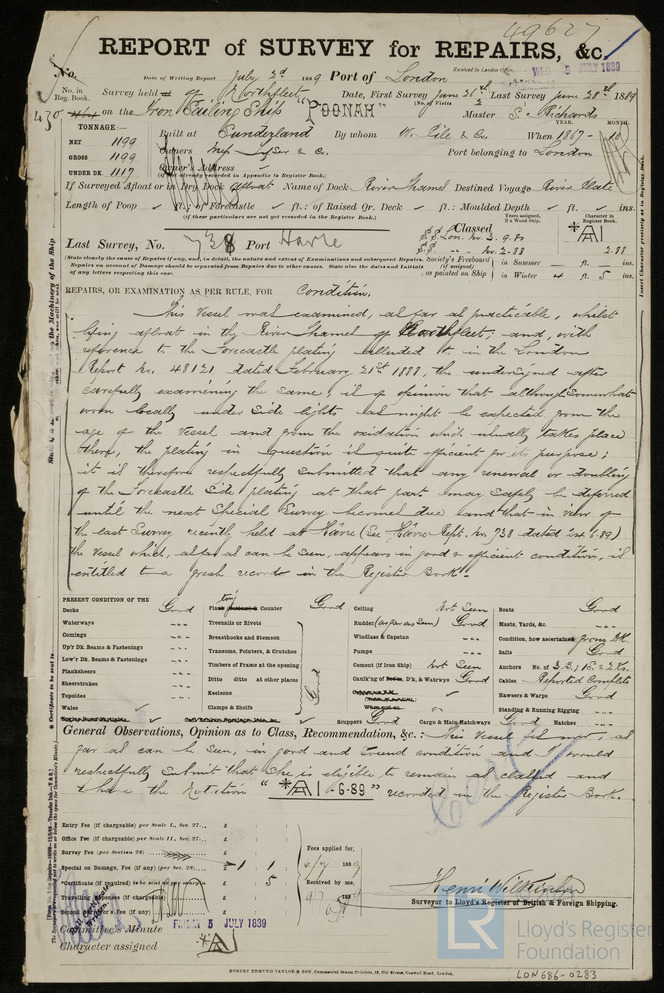 49627
REPORT of SURVEY for REPAIRS, &c.
No.
Date of Writing Report July 2d 1889 Port of London
Received in London Office
5 JULY 1889
No. in Reg. Book.
430
Survey held at off Northfleet Date, First Survey June 26th Last Survey June 28th 1889
(No. of Visits 2
on the Iron Sailing Ship "POONAH" Master S. Richards
TONNAGE:—
NET 1199
GROSS 1199
UNDER DK. 1117
Built at Sunderland By whom W. Pile & Co. When 1867 - 10
YEAR. MONTH.
Owners & Co. Port belonging to London
Owner's Address
(if not already recorded in Appendix to Register Book.)
If Surveyed Afloat or in Dry Dock Afloat Name of Dock River Thames Destined Voyage River Plate
Length of Poop ft. of Forecastle ft.: of Raised Qr. Deck ft.: Moulded Depth ft. ins.
(if these particulars are not yet recorded in the Register Book.)
Last Survey, No. 738 Port Havre
Classed
Years assigned, if a Wood Ship.
Character in Register Book
*A1
2.88
Lon. No. 2. 9.80
No. 2-88
Society's Freeboard (if assigned) as painted on Ship
in Summer — ft. — ins.
in Winter 4 ft. 5 ins.
(State clearly the cause of Repairs if any, and, in detail, the nature and extent of Examinations and subsequent Repairs.
Repairs on account of Damage should be separated from Repairs due to other causes. State also the dates and Initials
of any letters respecting this case.
REPAIRS, OR EXAMINATION AS PER RULE, FOR Condition,
This Vessel was examined, as far as practicable, whilst
lying afloat in the River Thames off Northfleet; and, with
reference to the Forecastle plating alluded to in the London
Report No. 48121 dated February 21st 1888, the undersigned after
carefully examining the same, is of opinion that although somewhat
worn locally under Side lights as might be expected from the
age of the Vessel and from the oxidation which usually takes place
there, the plating in question is quite efficient for its purpose;
it is therefore respectfully submitted that any renewal or doubling
of the Forecastle Side plating at that part may safely be deferred
until the next Special Survey becomes due and that in view of
the last Survey recently held at Havre (See Havre Rept. No. 738 dated 24.6.89)
the Vessel which, as far as can be seen, appears in good & efficient condition, is
entitled to a fresh record in the Register Book.-
PRESENT CONDITION OF THE
Decks Good
Waterways
Comings
Up'r Dk. Beams & Fastenings
Low'r Dk. Beams & Fastenings
Planksheers
Sheerstrakes
Topsides
Wales
Plating Counter Good
Treenails or Rivets
Breasthooks and Stemson
Transoms, Pointers, & Crutches
Timbers of Frame at the opening
Ditto ditto at other places
Keelsons
Clamps & Shelfs
Good
Ceiling Not Seen
Rudder (as far as seen) Good
Windlass & Capstan
Pumps
Cement (if Iron Ship) Not Seen
Caulk'ng of D'k, & Watrwys Good
Scuppers Good Cargo & Main Hatchways Good Hatches
Boats Good
Masts, Yards, &c.
Condition, how ascertained from Dk.
Sails Good
Anchors No. of 3 B; 1 S. & 2 Ks.
Cables Reported Complete
Hawsers & Warps Good
Standing & Running Rigging
General Observations, Opinion as to Class, Recommendation, &c.: This Vessel is now, as
far as can be seen, in good and sound condition and I would
respectfully submit that she is eligible to remain as classed and
to have the Notation "*A1 6-89" recorded in the Register Book.
Entry Fee (if chargeable) per Scale I., Sec. 27... £ : :
Office Fee (if chargeable) per Scale II., Sec. 27... £ : :
Survey Fee (per Section 28) £
Special on Damage, Fee (if any) (per Sec. 28) £ 1 1
*Certificate (if required) to be sent as per margin £ 5
Travelling Expenses (if chargeable) £
Second Surveyor's Fee (if any) £
Fees applied for,
1889
Received by me,
188
Henri Wilkinson
Surveyor to Lloyd's Register of British & Foreign Shipping.
Committee's Minute FRIDAY 5 JULY 1889
Character assigned *A1
ROBERT EDMUND TAYLOR & SON, Commercial Steam Printers, 19, Old Street, Goswell Road, London.
LON686-0283
LR
Lloyd's Register
Foundation